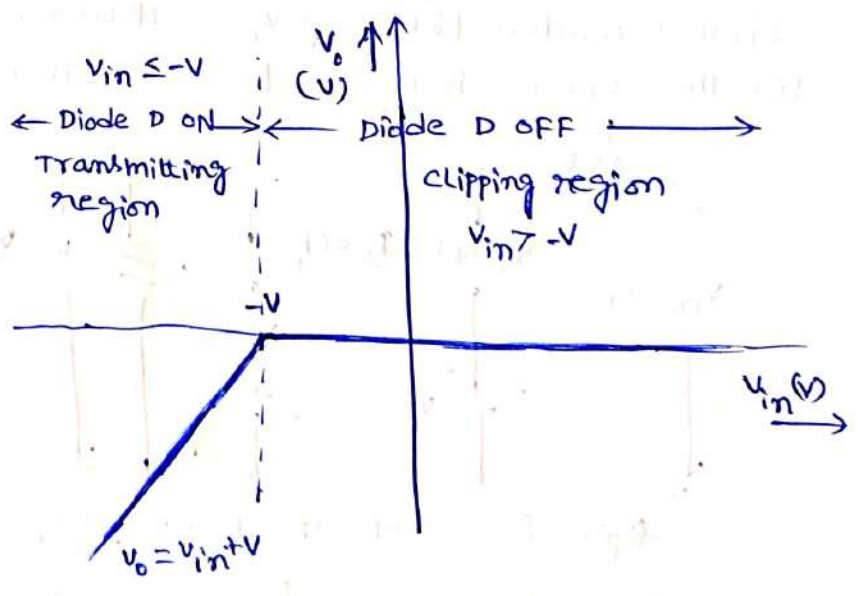 Vin ≤ -V
Vo
(V)
← Diode D ON →
← Diode D OFF →
Transmitting
region
Clipping region
Vin > -V
-V
Vin (V)
Vo = Vin + V